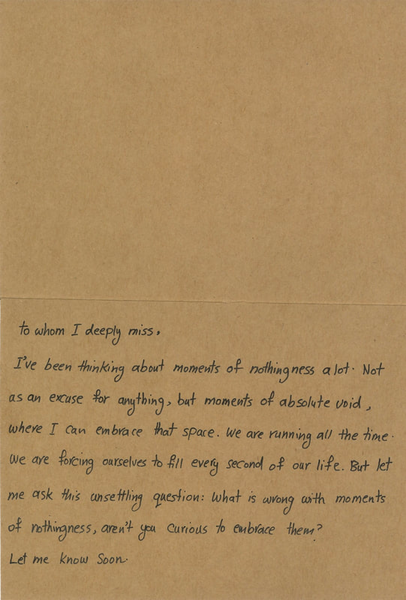 to whom I deeply miss,
I've been thinking about moments of nothingness a lot. Not
as an excuse for anything, but moments of absolute void,
where I can embrace that space. We are running all the time.
We are forcing ourselves to fill every second of our life. But let
me ask this unsettling question: What is wrong with moments
of nothingness, aren't you curious to embrace them?
Let me know soon.